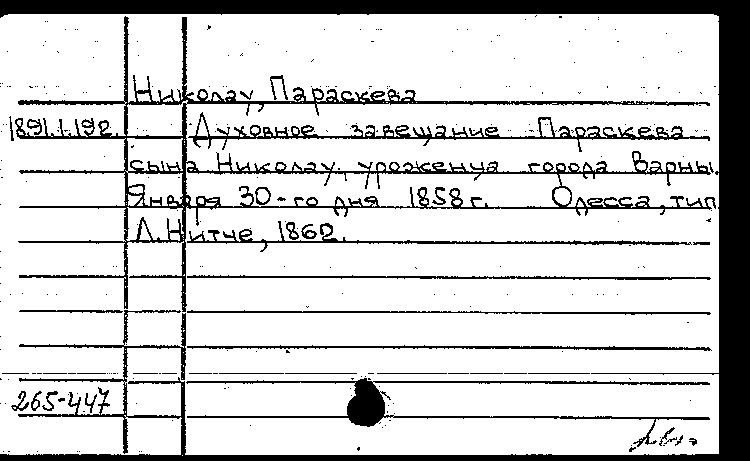 Николау, Параскева
1891.I.192. Духовное завещание Параскева
сына Николау, уроженца города Варны.
Января 30-го дня 1858 г. Одесса, тип
Л. Нитче, 1862.
265-447